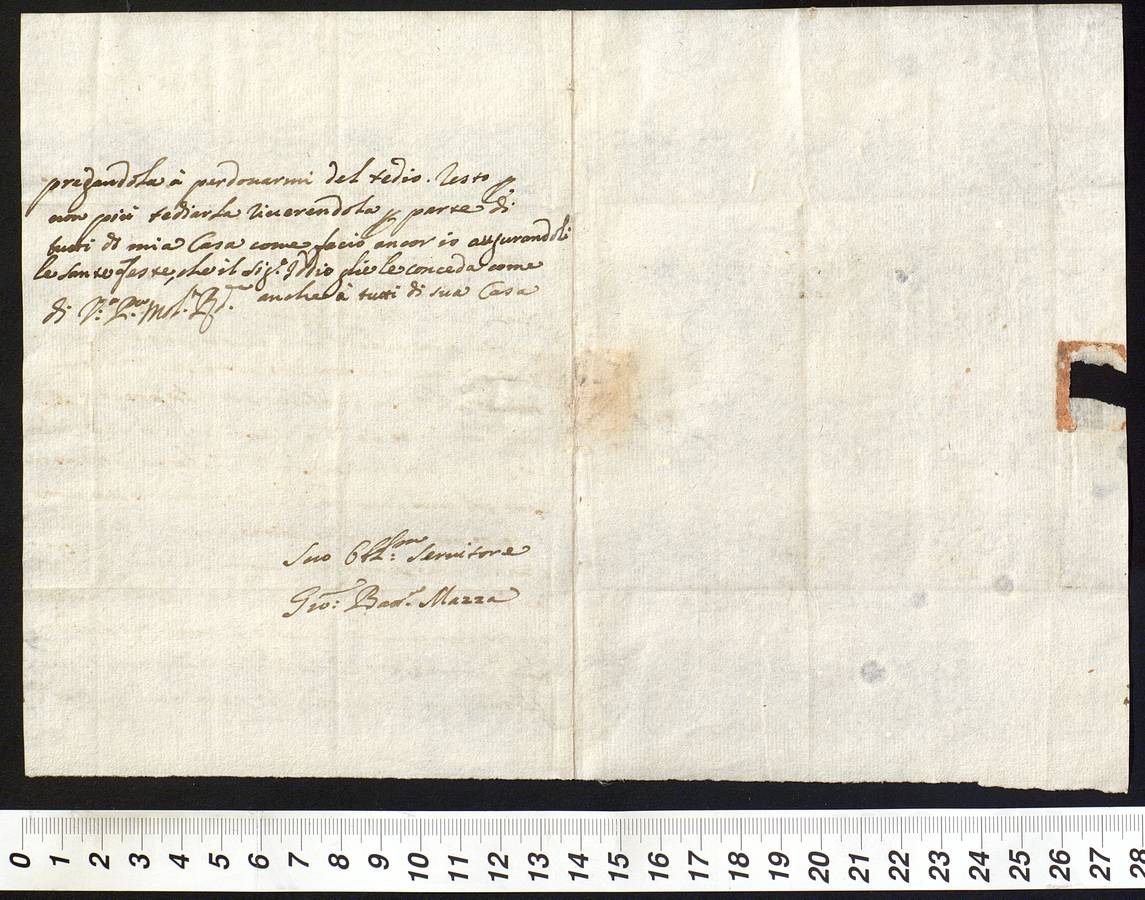 pregandola à perdonarmi del tedio. Resto p
non più tediarla riuerendola p parte di
tutti di mia Casa come facio ancor io augurandoli
le sante feste, che il Sig.r Iddio glie le conceda come
anche à tutti di sua Casa
di V.a
Suo Obl.mo Seruitore
Gio: Batt.a Mazza
0 1 2 3 4 5 6 7 8 9 10 11 12 13 14 15 16 17 18 19 20 21 22 23 24 25 26 27 28